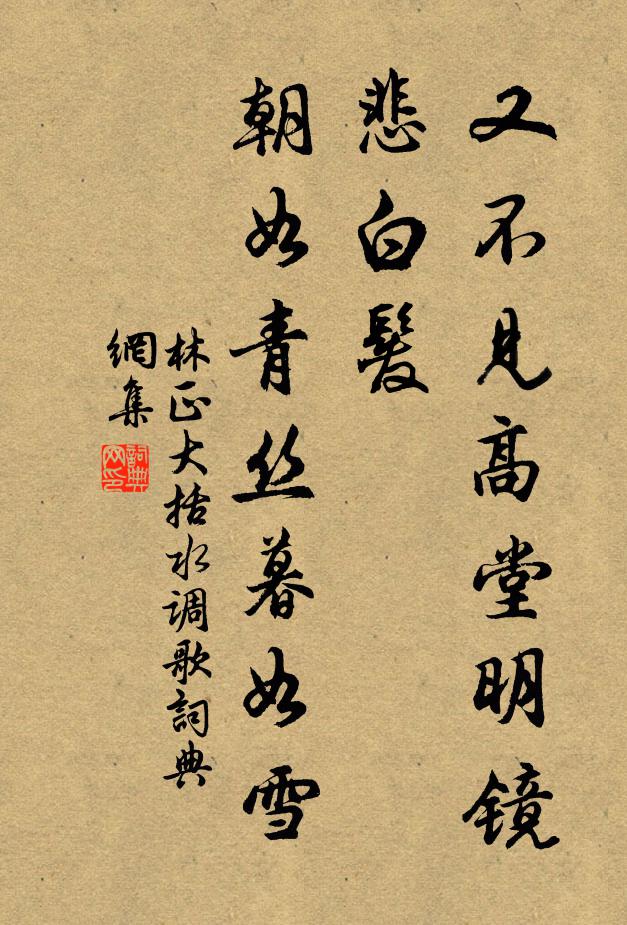 又不见高堂明镜
悲白髮
朝如青丝暮如雪
林正大括水调歌詞典
網集
詞典網印